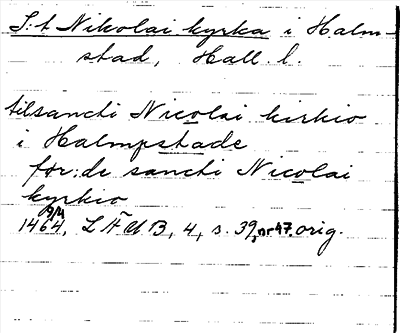 S:t Nikolai kyrka i Halm-
stad, Hall. l.
til sancti Nicolai kirkio
i Halmpstade
for:de sancti Nicolai
kyrkio
1464, LÄUB, 4, s. 39, nr 47. orig.